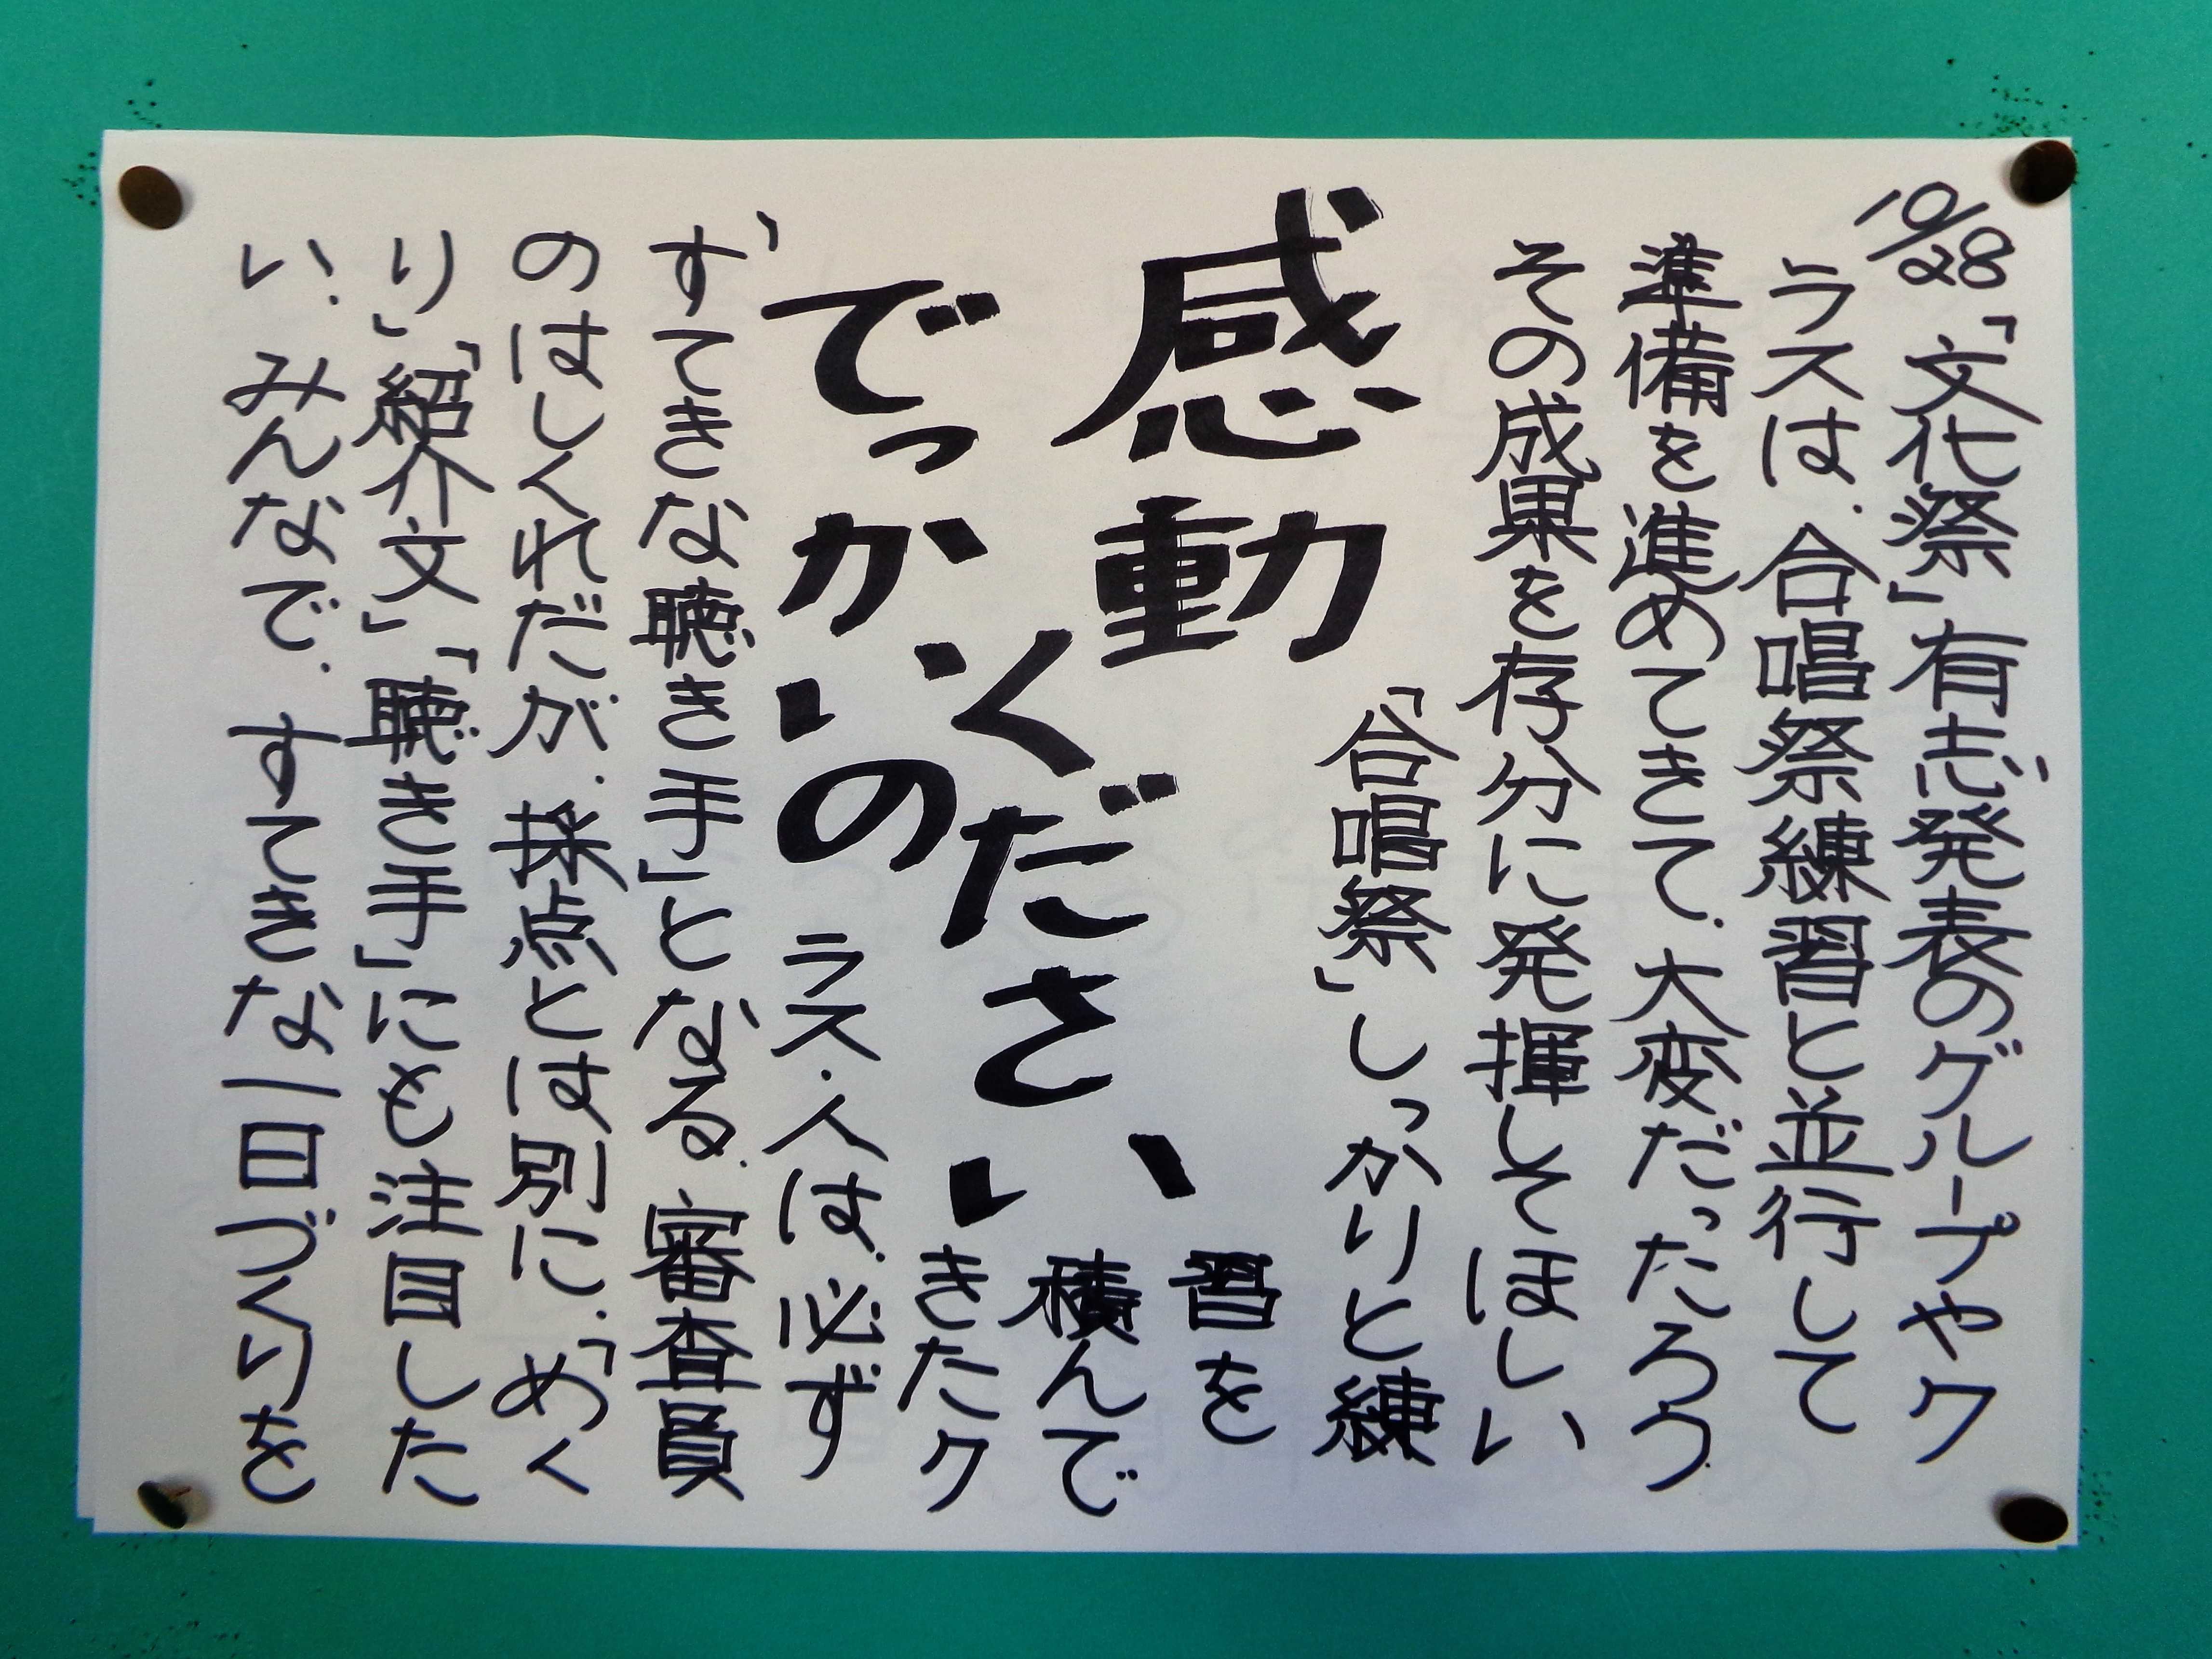 10/28
「文化祭」有志発表のグループやク
ラスは、合唱祭練習と並行して
準備を進めてきて、大変だったろう。
その成果を存分に発揮してほしい
感動
ください
でっかいの
「合唱祭」しっかりと練
習を
積んで
きたク
ラス・人は、必ず
「すてきな聴き手」となる。審査員
のはしくれだが、採点とは別に、「めく
り」「紹介文」「聴き手」にも注目した
い。みんなで、すてきな一日づくりを